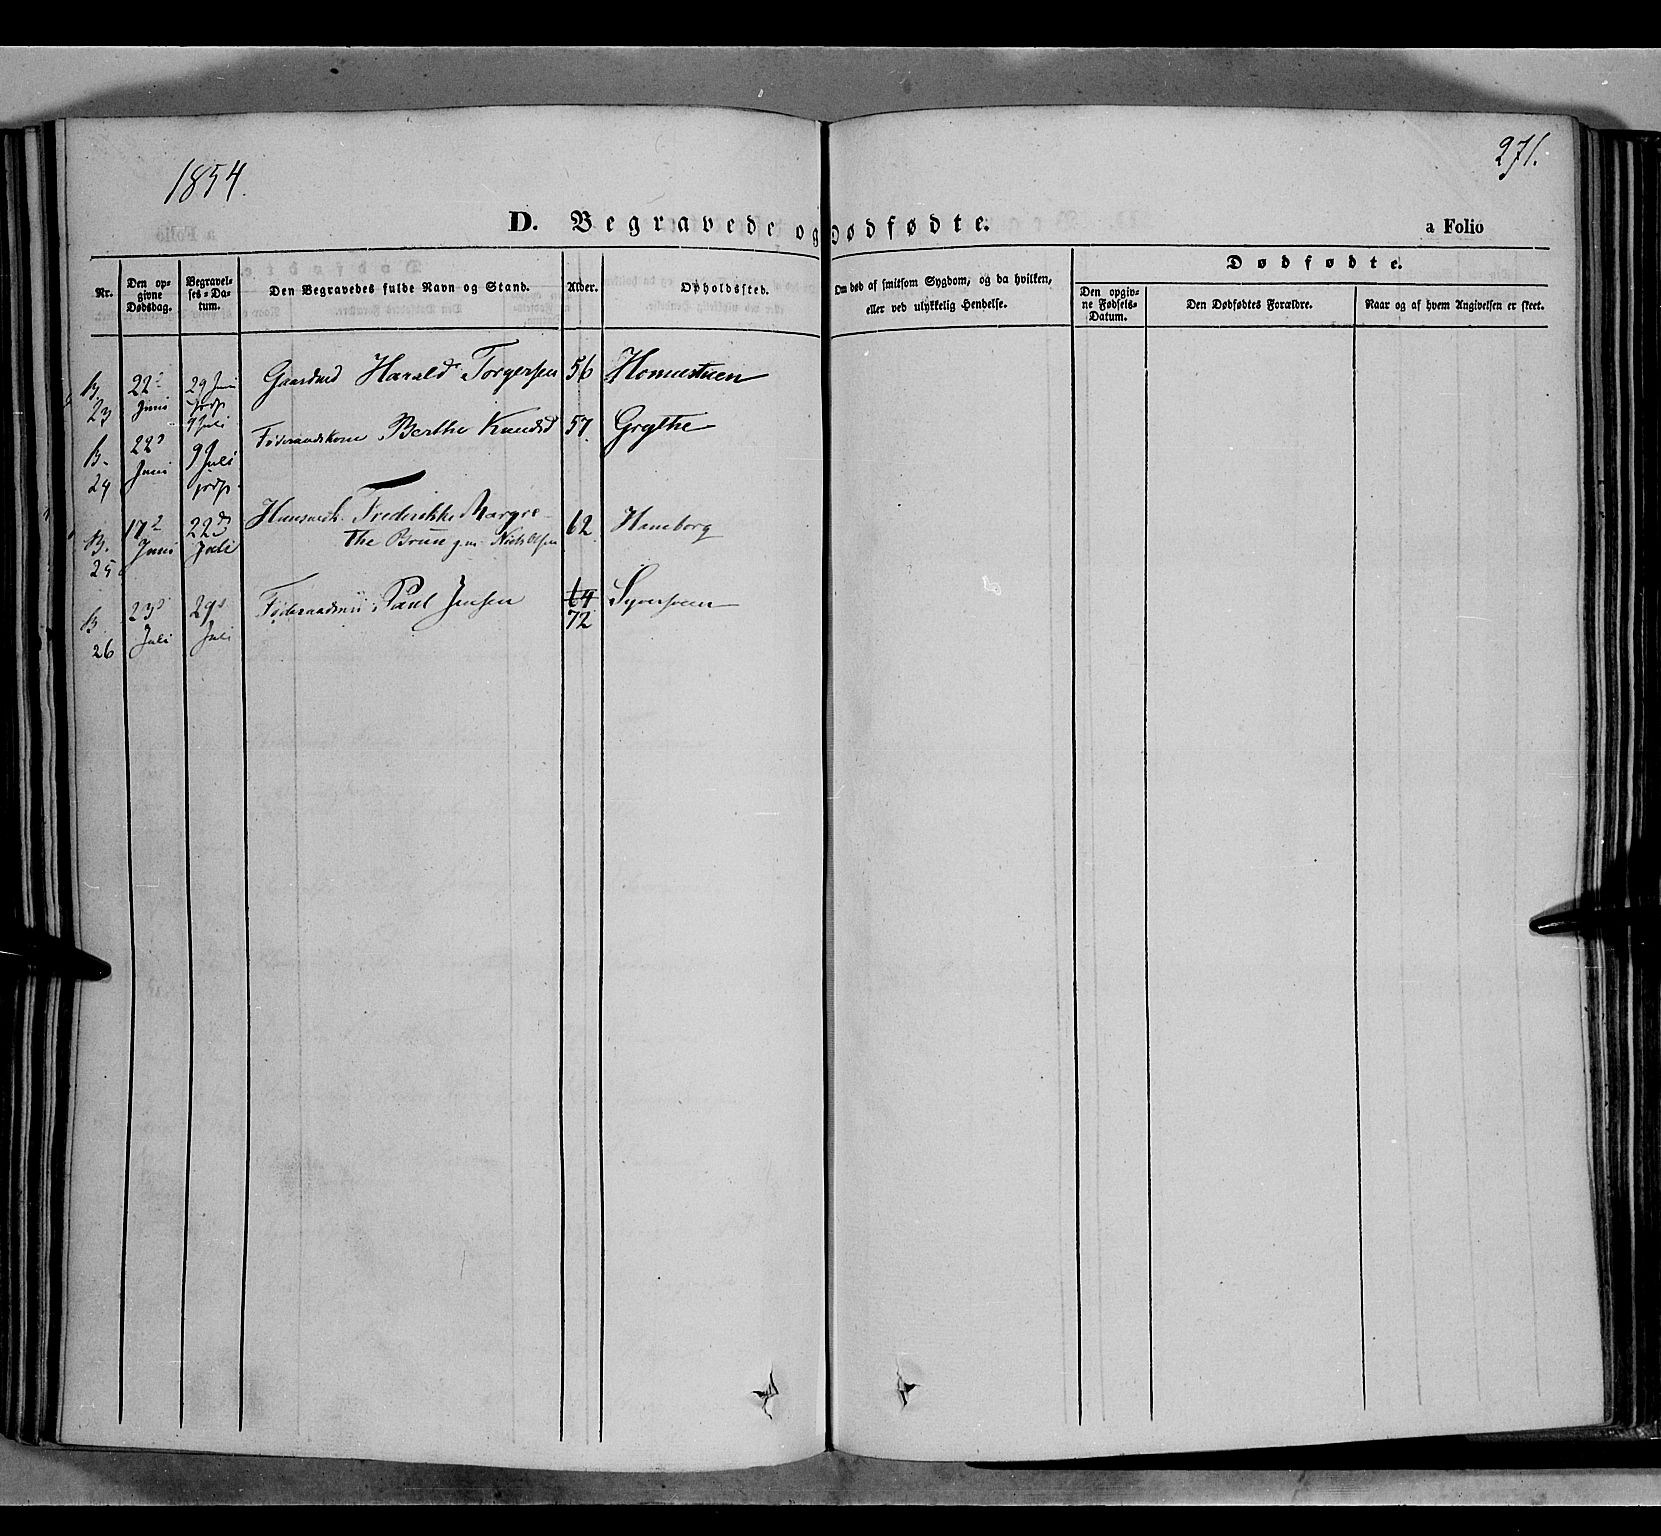 1854.
271.
D. Begravede og Dødfødte.
a Folio
Nr.
Den op-
givne
Dødsdag.
Begravel-
ses-Da-
tum.
Den Begravedes fulde Navn og Stand.
Alder.
Opholdssted.
Om død af smitsom Sygdom, og da hvilken,
eller ved ulykkelig Hendelse.
Dødfødte.
Den opgiv-
ne Fødsels-
Datum.
Den Dødfødtes Forældre.
Naar og af hvem Angivelsen er skeet.
B. 23
22d Juni
29 Juni
jordf.
9 Juli
Gaardmd Harald Torgersen
56
B. 24
22d Juni
9 Juli
jordf.
Føderaadskone Berthe Knudsd
57.
Grythe
B. 25
17d Juni
22d Juli
Frederikke Margre-
the Bruun g.m. Niels Olsen
62
Hamborg
B. 26
23d Juli
29d Juli
Paul Jensen
64
72